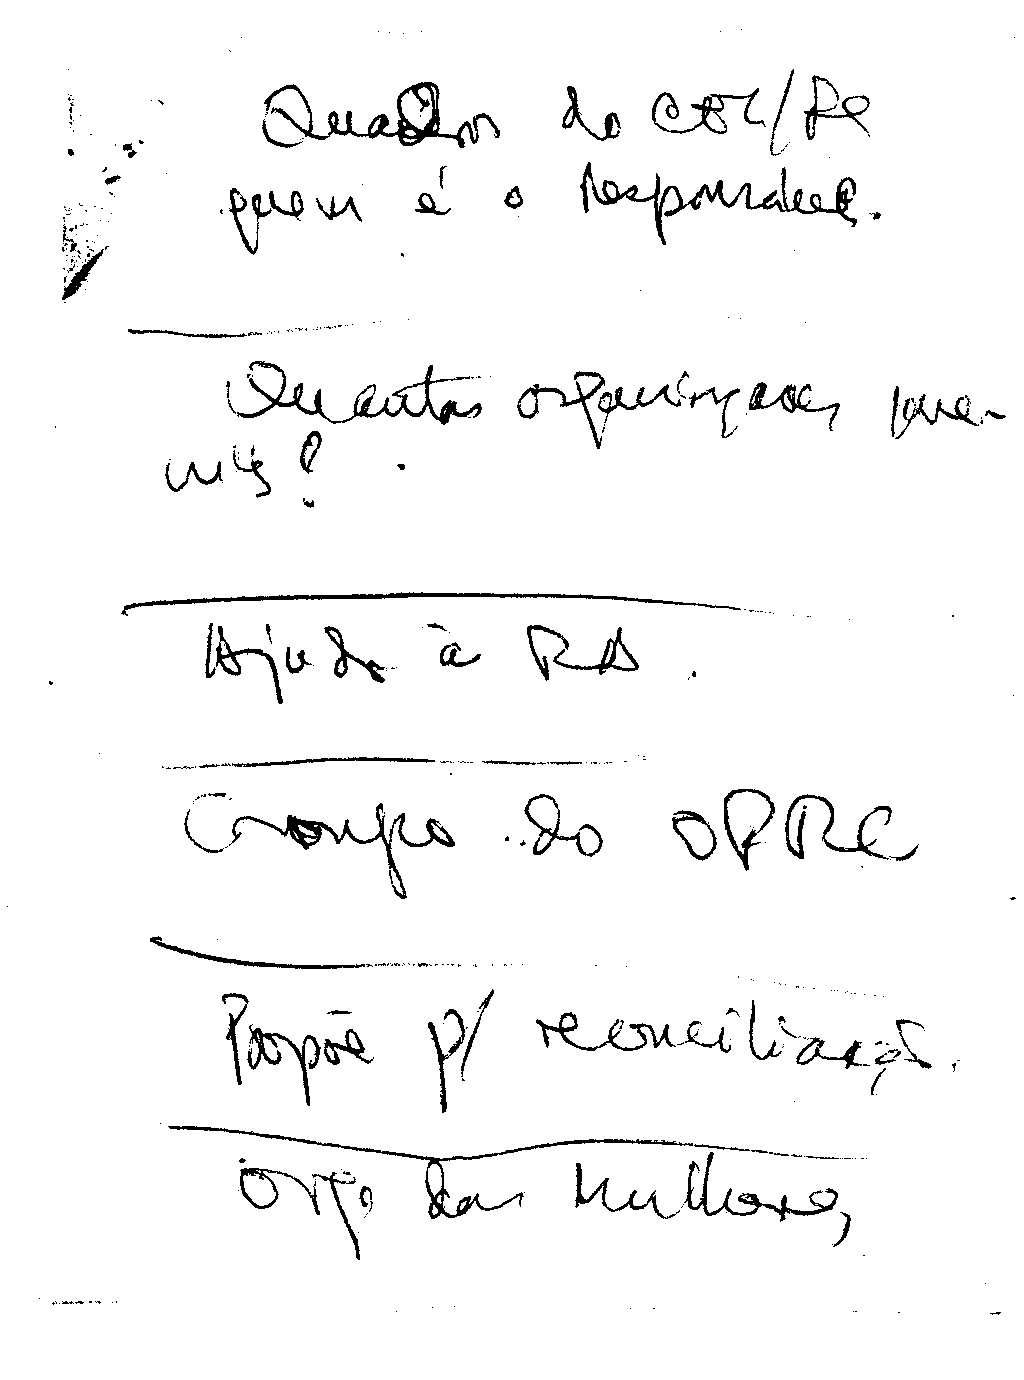 Quadros do CEL/PC
quem é o responsável.
Quantas organizações juve-
nis?
Ajuda à RDA.
Campo do
Propõe p/ reconciliação.
Orgo das Mulheres,